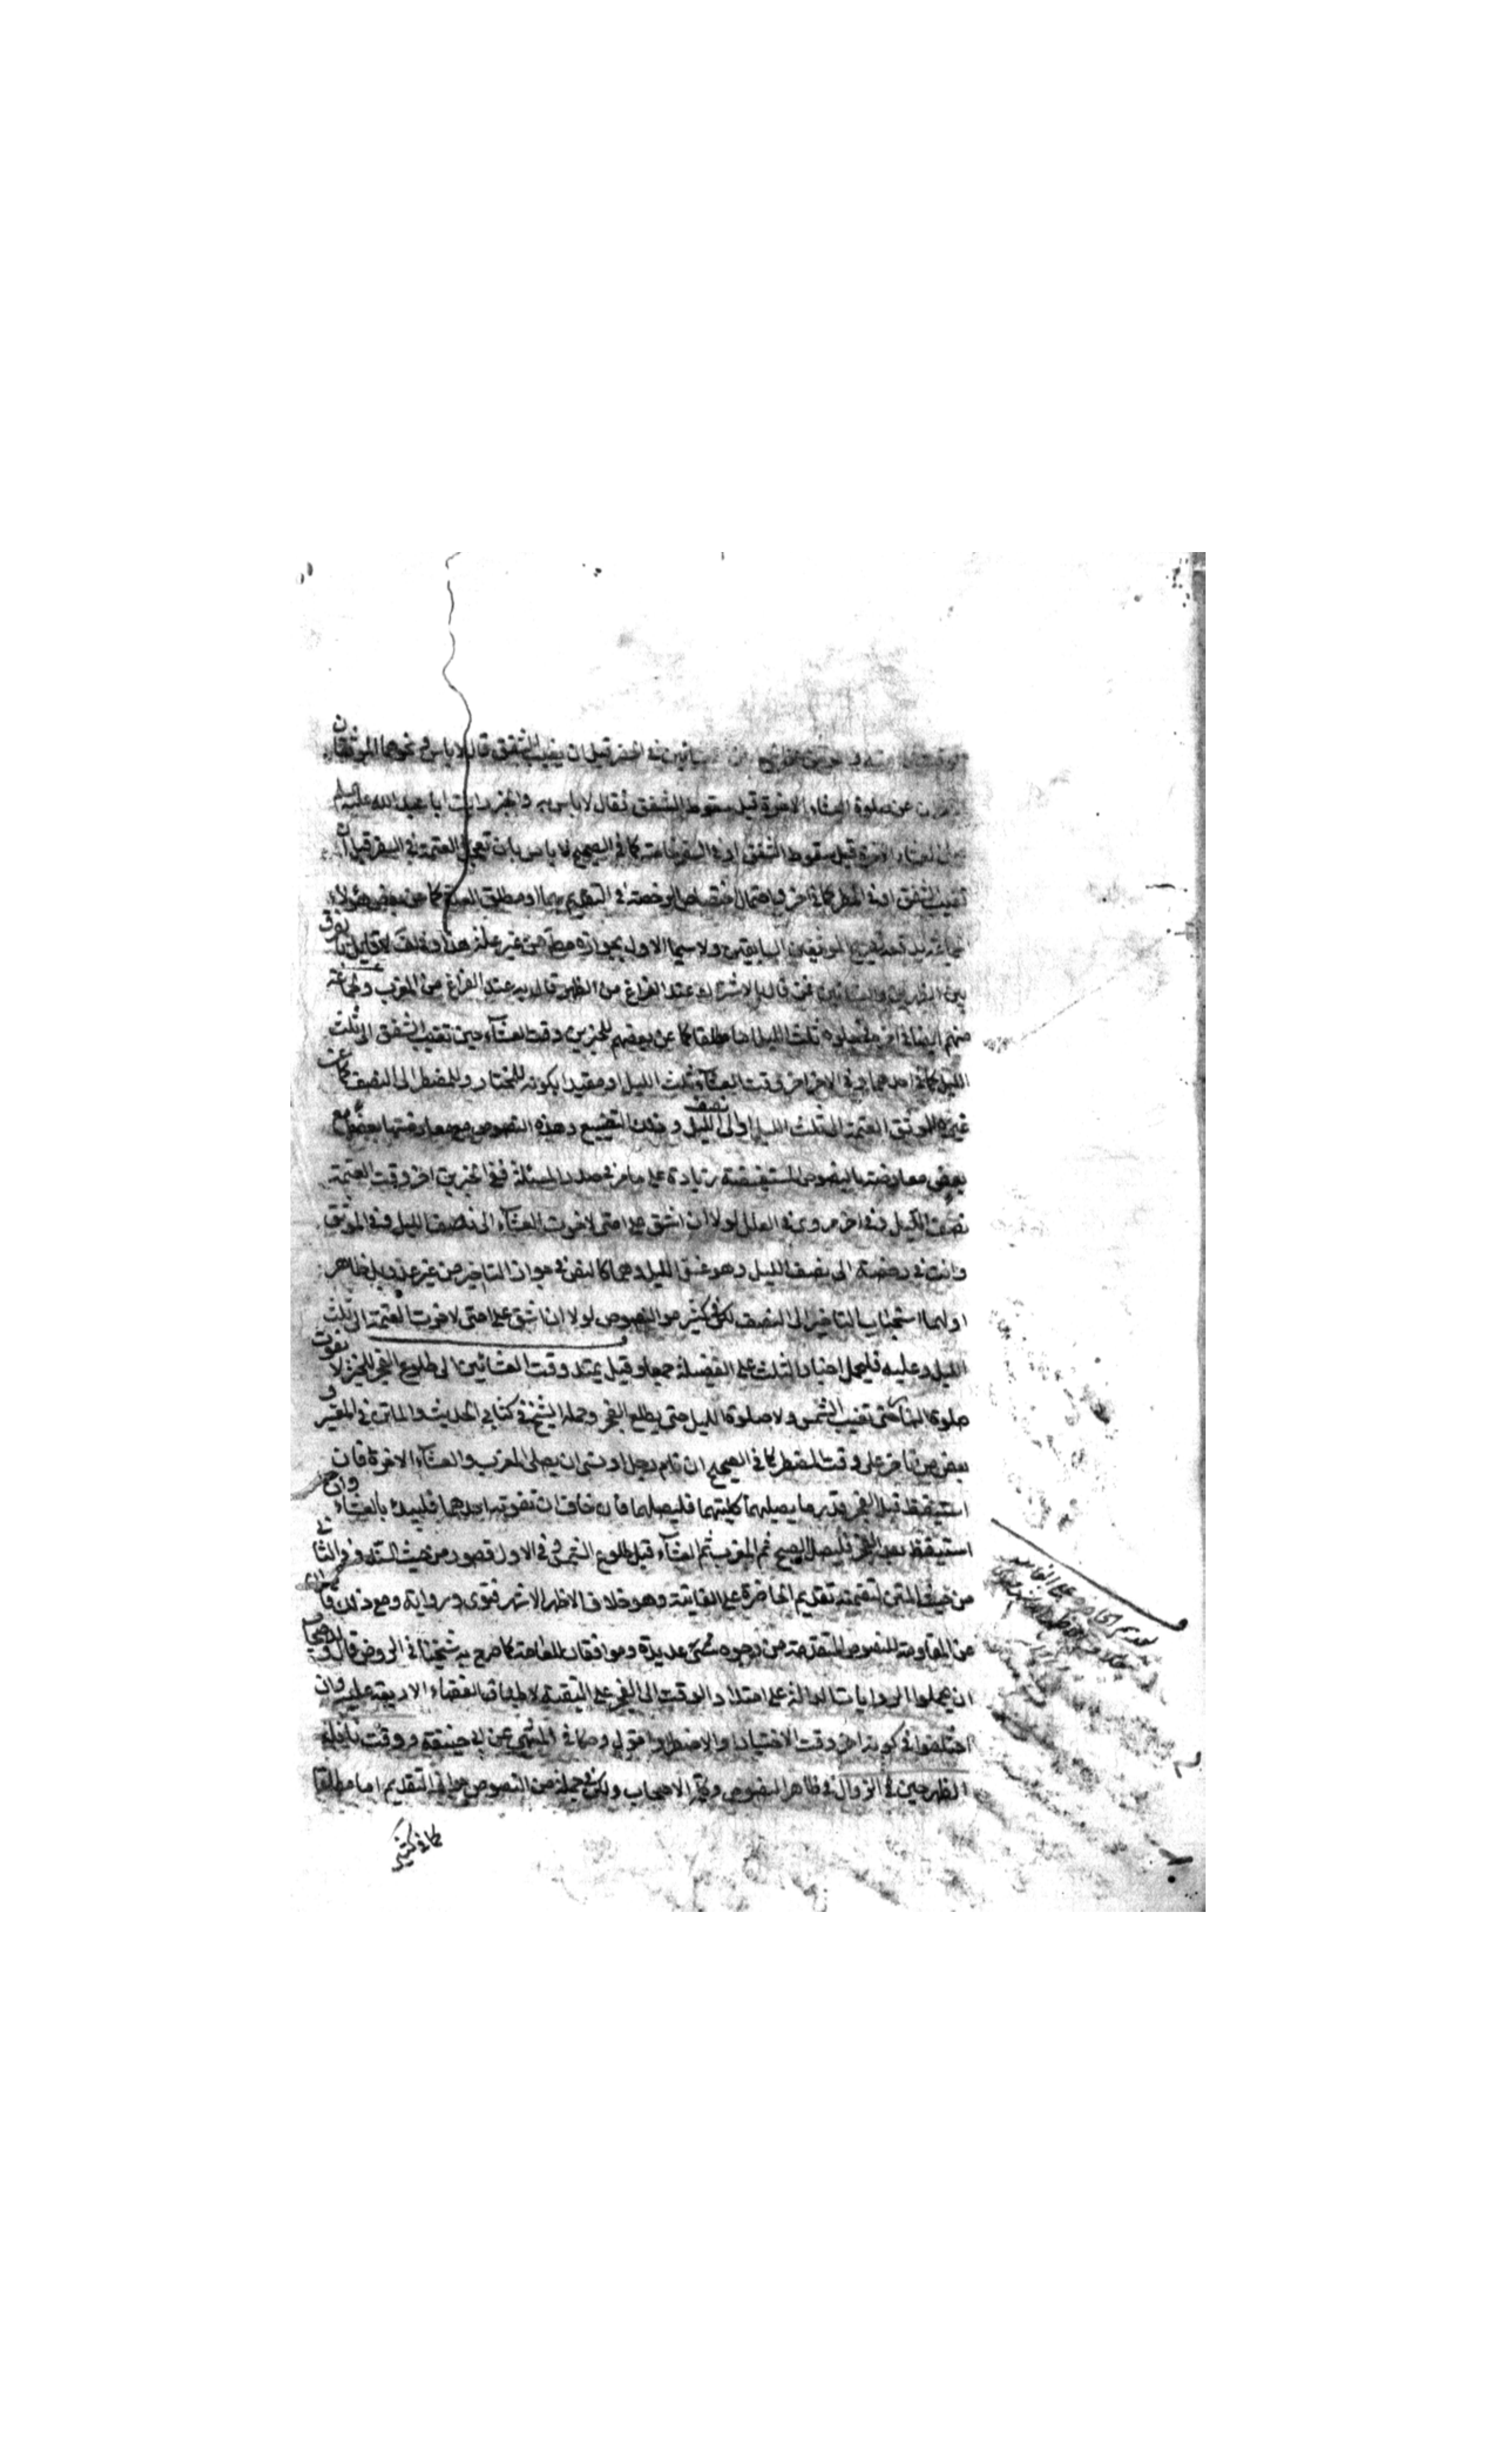 في السفر قبل ان يغيب الشفق قال لا باس ونحوهما الموثقان
عن صلوة العشاء الاخرة قبل سقوط الشفق فقال لا باس به والخبر رايت ابا عبد الله عليه السلم
صلى العشاء الاخرة قبل سقوط الشفق او في السفر خاصة كما في الصحيح لا باس بان تعجل العتمة في السفر قبل ان
تغيب الشفق او في المطر كما في اخر واحتمال اختصاص الرخصة في التقديم بهما او مطلق العذر كما عن بعض هؤلاء
الموثقين السابقين ولا سيما الاول بجوازه مطلقا من غير علة هذا مع انه لا قايل بالفرق
بين الظهرين والعشائين فمن قال بالاشتراك عند الفراغ من الظهر قال به عند الفراغ من المغرب وجماعة
منهم ايضا في اخره فجعلوه ثلث الليل اما مطلقا كما عن بعضهم للخبرين وقت العشآء حين تغيب الشفق الى ثلث
الليل كما في احدهما وفي الاخر اخر وقت العشآء ثلث الليل او مقيدا بكونه للمختار وللمضطر الى النصف كما عن
غيره للموثق العتمة الى ثلث الليل او الى نصف الليل وذلك التضييع وهذه النصوص مع معارضتها بعضها مع
بعض معارضة بالنصوص المستفيضة زيادة على ما مر في صدر المسئلة ففي الخبرين اخر وقت العتمة
نصف الليل وفي اخر مروي في العلل لولا ان اشق على امتي لاخرت العشآء الى نصف الليل وفي الموثق
وانت في رخصة الى نصف الليل وهو غسق الليل وهما كالنص في جواز التاخير من غير عذر بل ظاهر
اولهما استحباب التاخير الى النصف لكن في كثير من النصوص لولا ان اشق على امتي لاخرت العتمة الى ثلث
الليل وعليه فليحمل اخبار الثلث على الفضيلة جمعا وقيل يمتد وقت العشائين الى طلوع الفجر للخبر لا تفوت
صلوة النهار حتى تغيب الشمس ولا صلوة الليل حتى يطلع الفجر وحمله الشيخ في كتابي الحديث والماتن في المعتبر و
بعض من تاخر على وقت المضطر كما في الصحيح ان نام رجل او نسى ان يصلى المغرب والعشآء الاخرة فان
استيقظ قبل الفجر قدر ما يصليهما كلتيهما فليصلهما فان خاف ان تفوته احدهما فليبدء بالعشاء وان
استيقظ بعد الفجر فليصل الصبح ثم المغرب ثم العشآء قبل طلوع الشمس وفي الاول قصور من حيث السند وفي الثاني
من حيث المتن لتضمنه تقديم الحاضرة على الفائتة وهو خلاف الاظهر الاشهر فتوى ورواية ومع ذلك قاصران
عن المقاومة للنصوص المتقدمة من وجوه شتى عديدة وموافقان للعامة كما صرح به شيخنا في الروض قال وللاصحاب
ان يحملوا الروايات الدالة على امتداد الوقت الى الفجر على التقية لاطباق الفقهاء الاربعة عليه وان
اختلفوا في كونه اخر وقت الاختيار او الاضطرار اقول وحكاه في المنتهى عن ابي حنيفة ووقت نافلة
الظهر حين الزوال في ظاهر النصوص وكثير الاصحاب ولكن في جملة من النصوص جواز التقديم اما مطلقا
كما في كثير